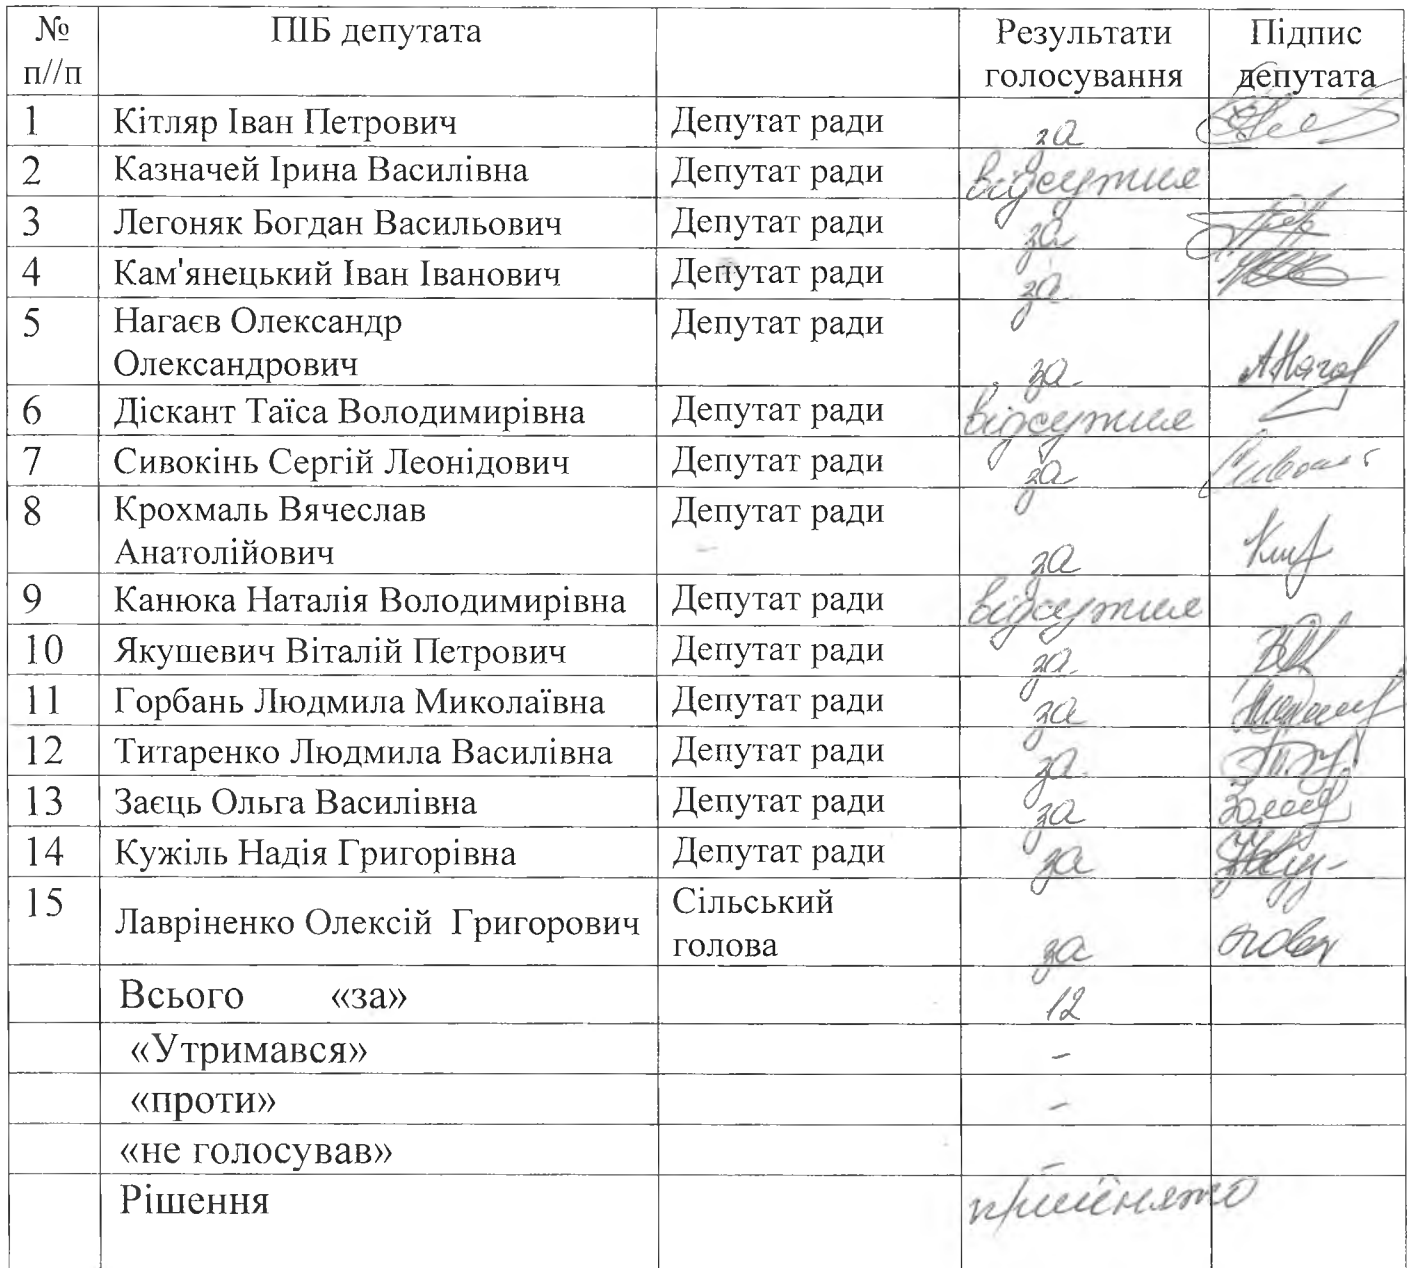 № п//п ПІБ депутата Результати голосування Підпис депутата
1 Кітляр Іван Петрович Депутат ради за
2 Казначей Ірина Василівна Депутат ради відсутня
3 Легоняк Богдан Васильович Депутат ради за
4 Кам'янецький Іван Іванович Депутат ради за
5 Нагаєв Олександр Олександрович Депутат ради за
6 Діскант Таїса Володимирівна Депутат ради відсутня
7 Сивокінь Сергій Леонідович Депутат ради за
8 Крохмаль Вячеслав Анатолійович Депутат ради за
9 Канюка Наталія Володимирівна Депутат ради відсутня
10 Якушевич Віталій Петрович Депутат ради за
11 Горбань Людмила Миколаївна Депутат ради за
12 Титаренко Людмила Василівна Депутат ради за
13 Заєць Ольга Василівна Депутат ради за
14 Кужіль Надія Григорівна Депутат ради за
15 Лавріненко Олексій Григорович Сільський голова за
Всього «за» 12
«Утримався» -
«проти» -
«не голосував» -
Рішення прийнято